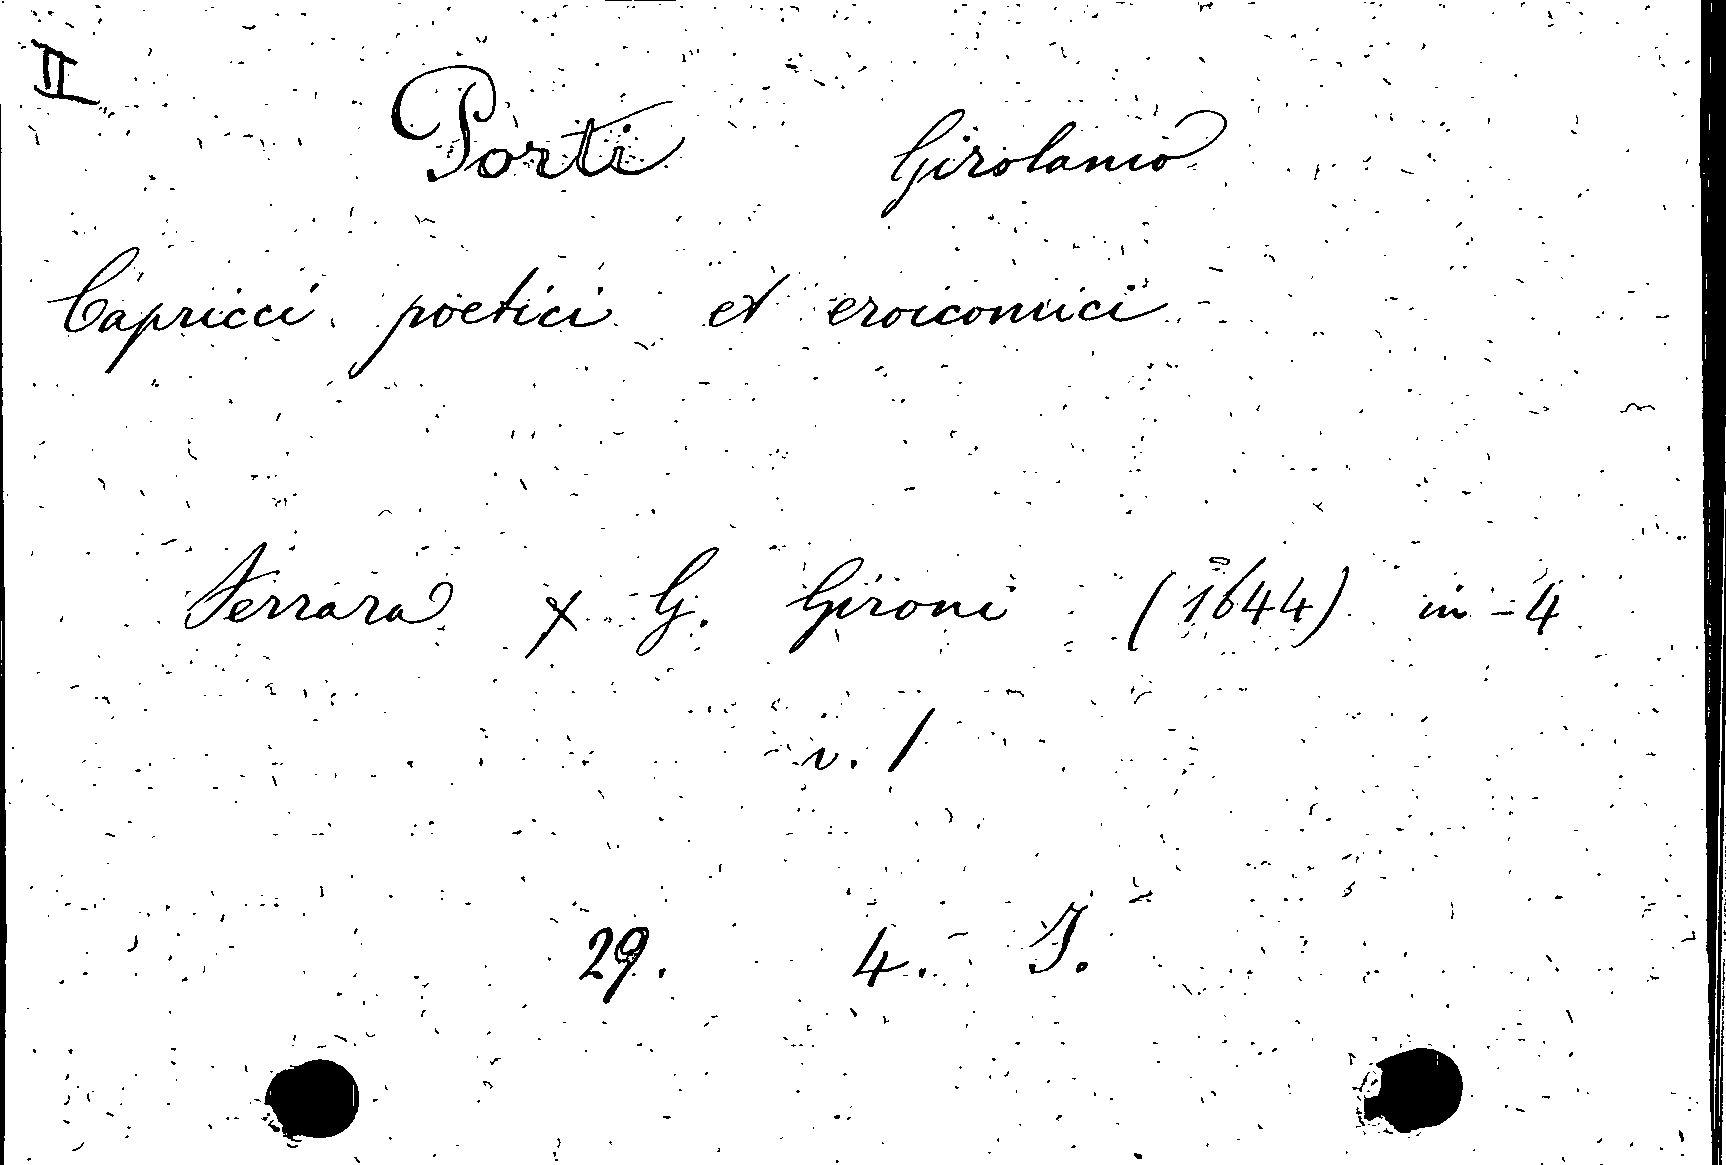 II
Porti Girolamo
Capricci poetici et eroicomici
Ferrara x G. Gironi (1644) in-4
v. 1
29. 4. I.